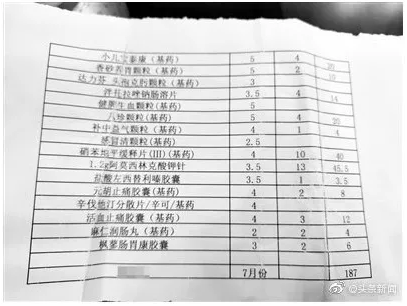 小儿宝泰康(基药) 5 4 20
香砂养胃颗粒(基药) 5 2 10
达力芬 头孢克肟颗粒(基药) 3
泮托拉唑钠肠溶片 3.5 4 14
健脾生血颗粒(基药) 5
八珍颗粒(基药) 5 4
补中益气颗粒(基药) 4 1 4
感冒清颗粒(基药) 2.5
硝苯地平缓释片(III)(基药) 4 10 40
1.2g阿莫西林克酸钾针 3.5 13 45.5
盐酸左西替利嗪胶囊 3.5 1 3.5
元胡止痛胶囊(基药) 4 2 8
辛伐他汀分散片/辛可/基药 4
活血止痛胶囊(基药) 4 3 12
麻仁润肠丸(基药) 2 2 4
枫蓼肠胃康胶囊 3 2 6
7月份 187
@头条新闻